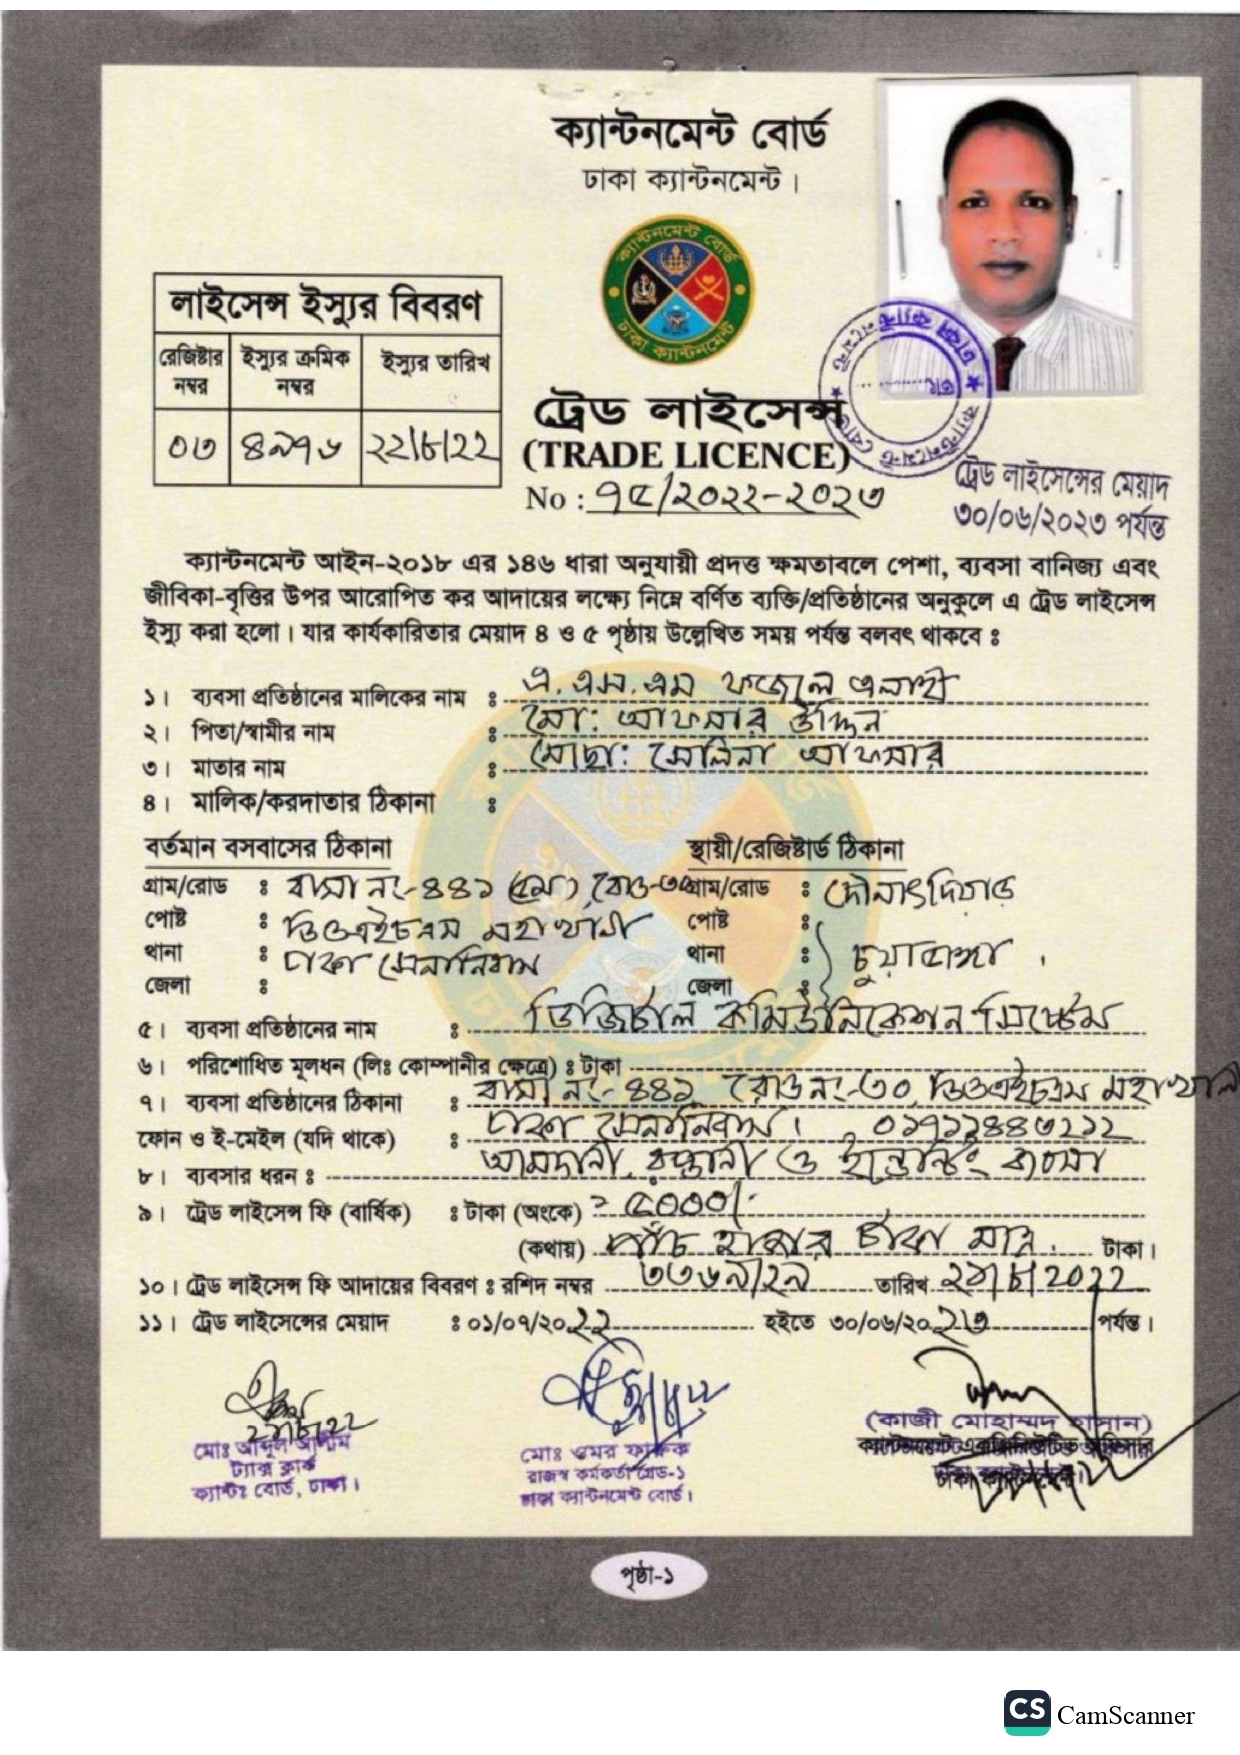 ক্যান্টনমেন্ট বোর্ড
ঢাকা ক্যান্টনমেন্ট।
ক্যান্টনমেন্ট বোর্ড
ঢাকা ক্যান্টনমেন্ট
লাইসেন্স ইস্যুর বিবরণ
রেজিষ্টার নম্বর ইস্যুর ক্রমিক নম্বর ইস্যুর তারিখ
০৩ ৪৯৭৬ ২২/৮/২২
ট্রেড লাইসেন্স
(TRADE LICENCE)
No : ৭৫/২০২২-২০২৩
ট্রেড লাইসেন্সের মেয়াদ
৩০/০৬/২০২৩ পর্যন্ত
ক্যান্টনমেন্ট আইন-২০১৮ এর ১৪৬ ধারা অনুযায়ী প্রদত্ত ক্ষমতাবলে পেশা, ব্যবসা বানিজ্য এবং
জীবিকা-বৃত্তির উপর আরোপিত কর আদায়ের লক্ষ্যে নিম্নে বর্ণিত ব্যক্তি/প্রতিষ্ঠানের অনুকুলে এ ট্রেড লাইসেন্স
ইস্যু করা হলো। যার কার্যকারিতার মেয়াদ ৪ ও ৫ পৃষ্ঠায় উল্লেখিত সময় পর্যন্ত বলবৎ থাকবে ঃ
১। ব্যবসা প্রতিষ্ঠানের মালিকের নাম ঃ এ. এস. এম ফজলে এলাহী
২। পিতা/স্বামীর নাম ঃ মো: আফসার উদ্দিন
৩। মাতার নাম ঃ মোছা: সেলিনা আফসার
৪। মালিক/করদাতার ঠিকানা ঃ
বর্তমান বসবাসের ঠিকানা স্থায়ী/রেজিষ্টার্ড ঠিকানা
গ্রাম/রোড ঃ বাসা নং-৪৪১ (৫ম), রোড-৩০ গ্রাম/রোড ঃ দৌলাৎদিয়াড়
পোষ্ট ঃ ডিওএইচএস মহাখালী পোষ্ট ঃ
থানা ঃ ঢাকা সেনানিবাস থানা ঃ চুয়াডাঙ্গা।
জেলা ঃ জেলা ঃ
৫। ব্যবসা প্রতিষ্ঠানের নাম ঃ ডিজিটাল কমিউনিকেশন সিস্টেম
৬। পরিশোধিত মূলধন (লিঃ কোম্পানীর ক্ষেত্রে) ঃ টাকা
৭। ব্যবসা প্রতিষ্ঠানের ঠিকানা ঃ বাসা নং-৪৪১, রোড নং-৩০, ডিওএইচএস মহাখালী
ফোন ও ই-মেইল (যদি থাকে) ঃ ঢাকা সেনানিবাস। , ০১৭১১৪৪৩২১২
৮। ব্যবসার ধরন ঃ আমদানী, রপ্তানী ও ইন্ডেন্টিং ব্যবসা
৯। ট্রেড লাইসেন্স ফি (বার্ষিক) ঃ টাকা (অংকে) = ৫০০০/-
(কথায়) পাঁচ হাজার টাকা মাত্র. টাকা।
১০। ট্রেড লাইসেন্স ফি আদায়ের বিবরণ ঃ রশিদ নম্বর ৩৩৬৯/২৯ তারিখ ২১/৮/২০২২
১১। ট্রেড লাইসেন্সের মেয়াদ ঃ ০১/০৭/২০২২ হইতে ৩০/০৬/২০২৩ পর্যন্ত।
মোঃ আব্দুল আলীম
ট্যাক্স ক্লার্ক
ক্যান্টঃ বোর্ড, ঢাকা।
মোঃ ওমর ফারুক
রাজস্ব কর্মকর্তা গ্রেড-১
ঢাকা ক্যান্টনমেন্ট বোর্ড।
(কাজী মোহাম্মদ হাসান)
ক্যান্টনমেন্ট এক্সিকিউটিভ অফিসার
ঢাকা ক্যান্টনমেন্ট।
পৃষ্ঠা-১
CS CamScanner